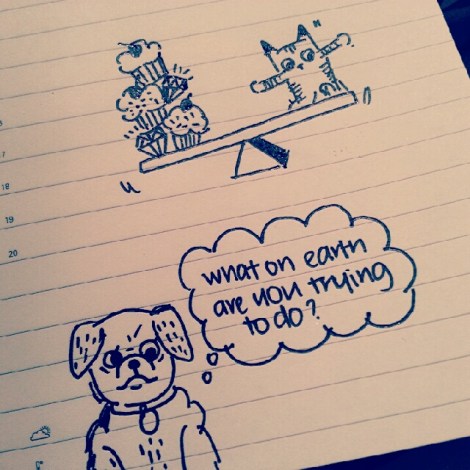 7
18
19
20
what on earth
are you trying
to do?